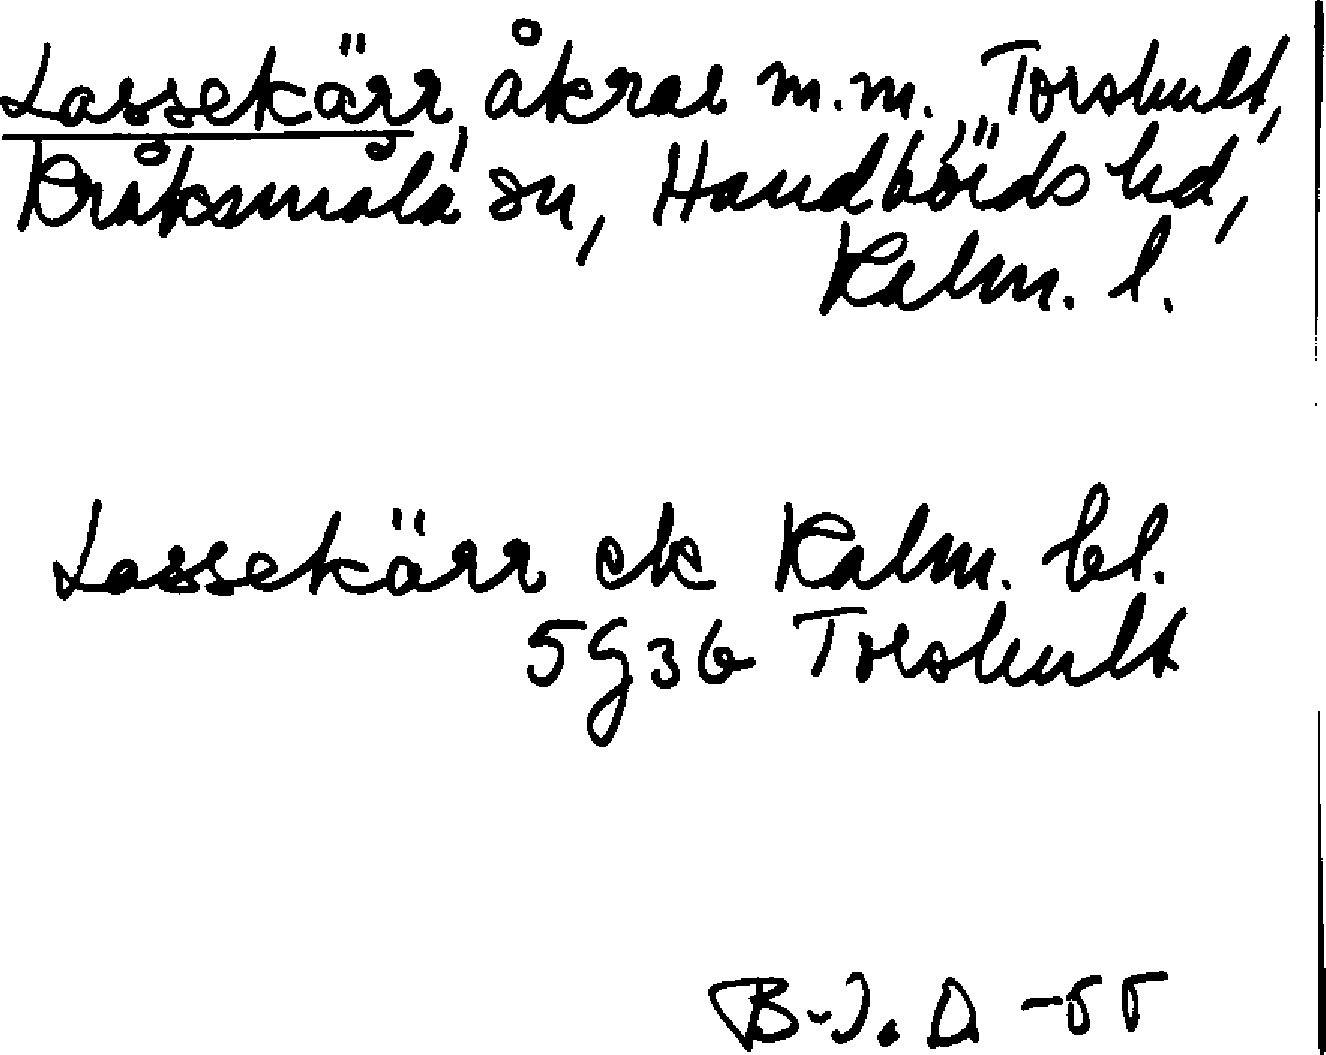 Lassekärr, åkrar m.m., Torshult,
Kråksmåla sn, Handbörds hd,
Kalm. l.
Lassekärr ek Kalm. bl.
5g36 Torshult
B-J. D -55